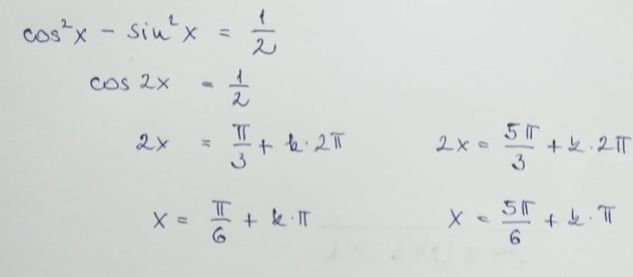 cos²x − sin²x = 1/2
cos 2x = 1/2
2x = π/3 + k·2π 2x = 5π/3 + k·2π
x = π/6 + k·π x = 5π/6 + k·π